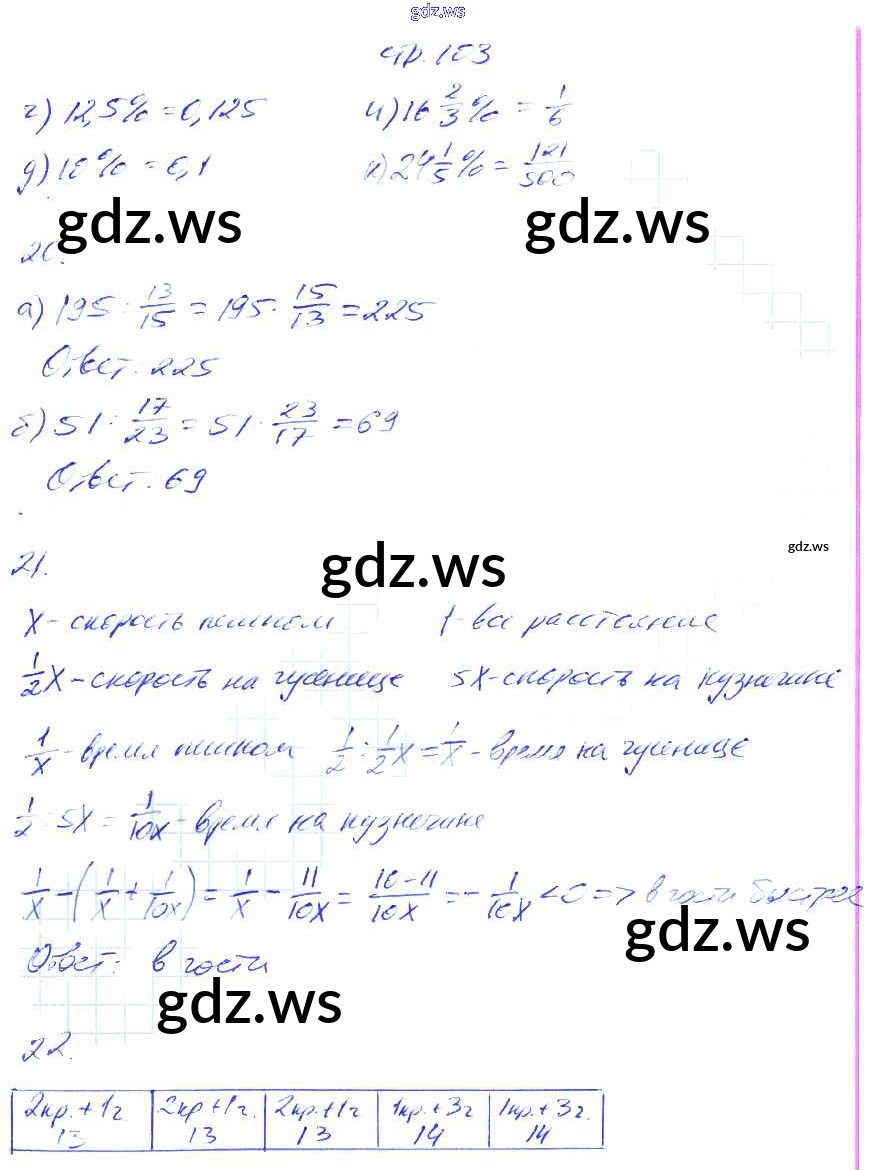 gdz.ws
стр. 103
г) 12,5% = 0,125 и) 16 2/3 % = 1/6
д) 10% = 0,1 к) 24 1/5 % = 121/500
gdz.ws gdz.ws
20.
а) 195 : 13/15 = 195 · 15/13 = 225
Ответ. 225
б) 51 : 17/23 = 51 · 23/17 = 69
Ответ. 69
gdz.ws
gdz.ws
21.
x - скорость пешком 1 - все расстояние
1/2 x - скорость на гусенице 5x - скорость на кузнечике
1/x - время пешком 1/2 : 1/2 x = 1/x - время на гусенице
1/2 : 5x = 1/10x - время на кузнечике
1/x - (1/x + 1/10x) = 1/x - 11/10x = 10-11/10x = - 1/10x < 0 => в гости быстрее
gdz.ws
Ответ: в гости
gdz.ws
22.
2кр. + 1г 2кр + 1г. 2кр. + 1г 1кр. + 3г 1кр. + 3г.
13 13 13 14 14